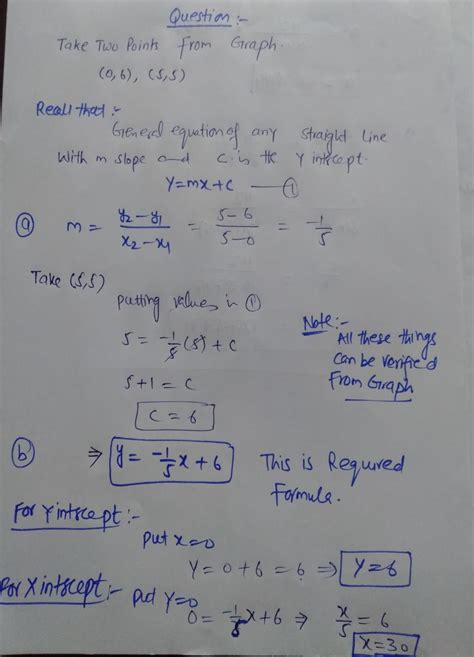 Question :-
Take Two Points from Graph.
(0,6), (5,5)
Recall that :-
General equation of any straight Line
With m slope and c is the Y intscept.
Y=mx+c —①
ⓐ m = y₂-y₁/x₂-x₁ = 5-6/5-0 = -1/5
Take (5,5)
putting values in ①
5 = -1/5(5) + c
5+1 = c
c = 6
Note:-
All these things
can be verified
From Graph
ⓑ ⇒ y = -1/5x + 6 This is Required
Formula.
For Y intscept :-
put x=0
Y = 0+6 = 6 ⇒ Y=6
For X intscept :- put Y=0
0 = -1/5x+6 ⇒ x/5 = 6
x=30